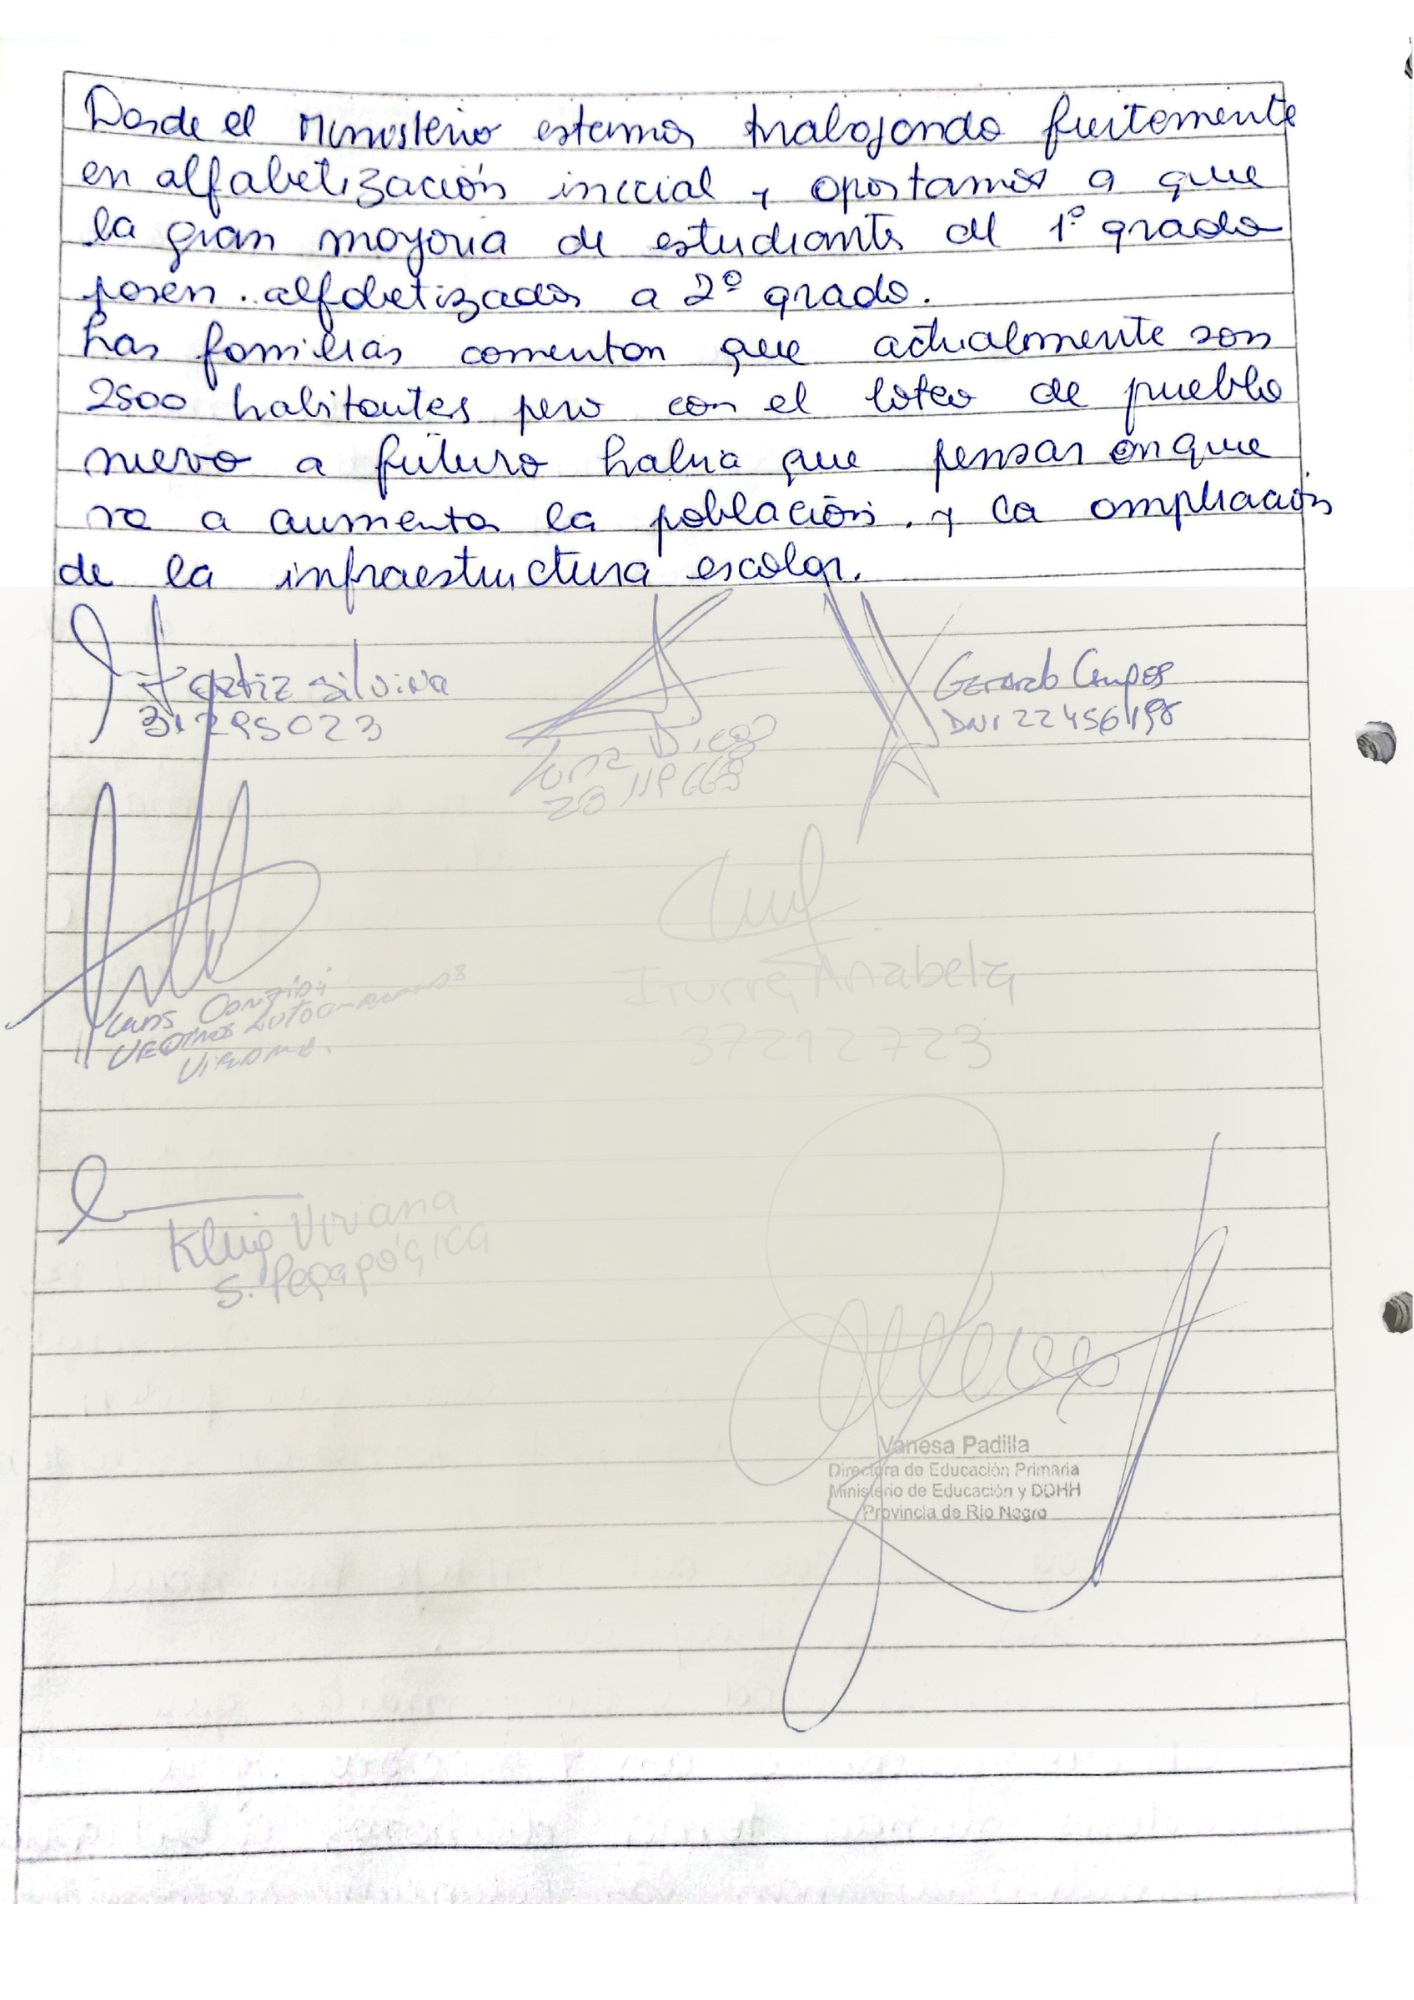 Desde el Ministerio estamos trabajando fuertemente
en alfabetización inicial y apostamos a que
la gran mayoria de estudiantes del 1º grado
pasen alfabetizados a 2º grado.
Las familias comentan que actualmente son
2500 habitantes pero con el loteo de pueblo
nuevo a futuro habria que pensar en que
va a aumentar la población. y la ampliación
de la infraestructura escolar.
Ortiz Silvina
31295023
Gerardo Campos
DNI 22456198
Luna Diego
28119663
Luis
Vecinos Autoconvocados
Viedma.
Anabela
37212723
Klug Viviana
S. Pedagógica
Vanesa Padilla
Directora de Educación Primaria
Ministerio de Educación y DDHH
Provincia de Río Negro